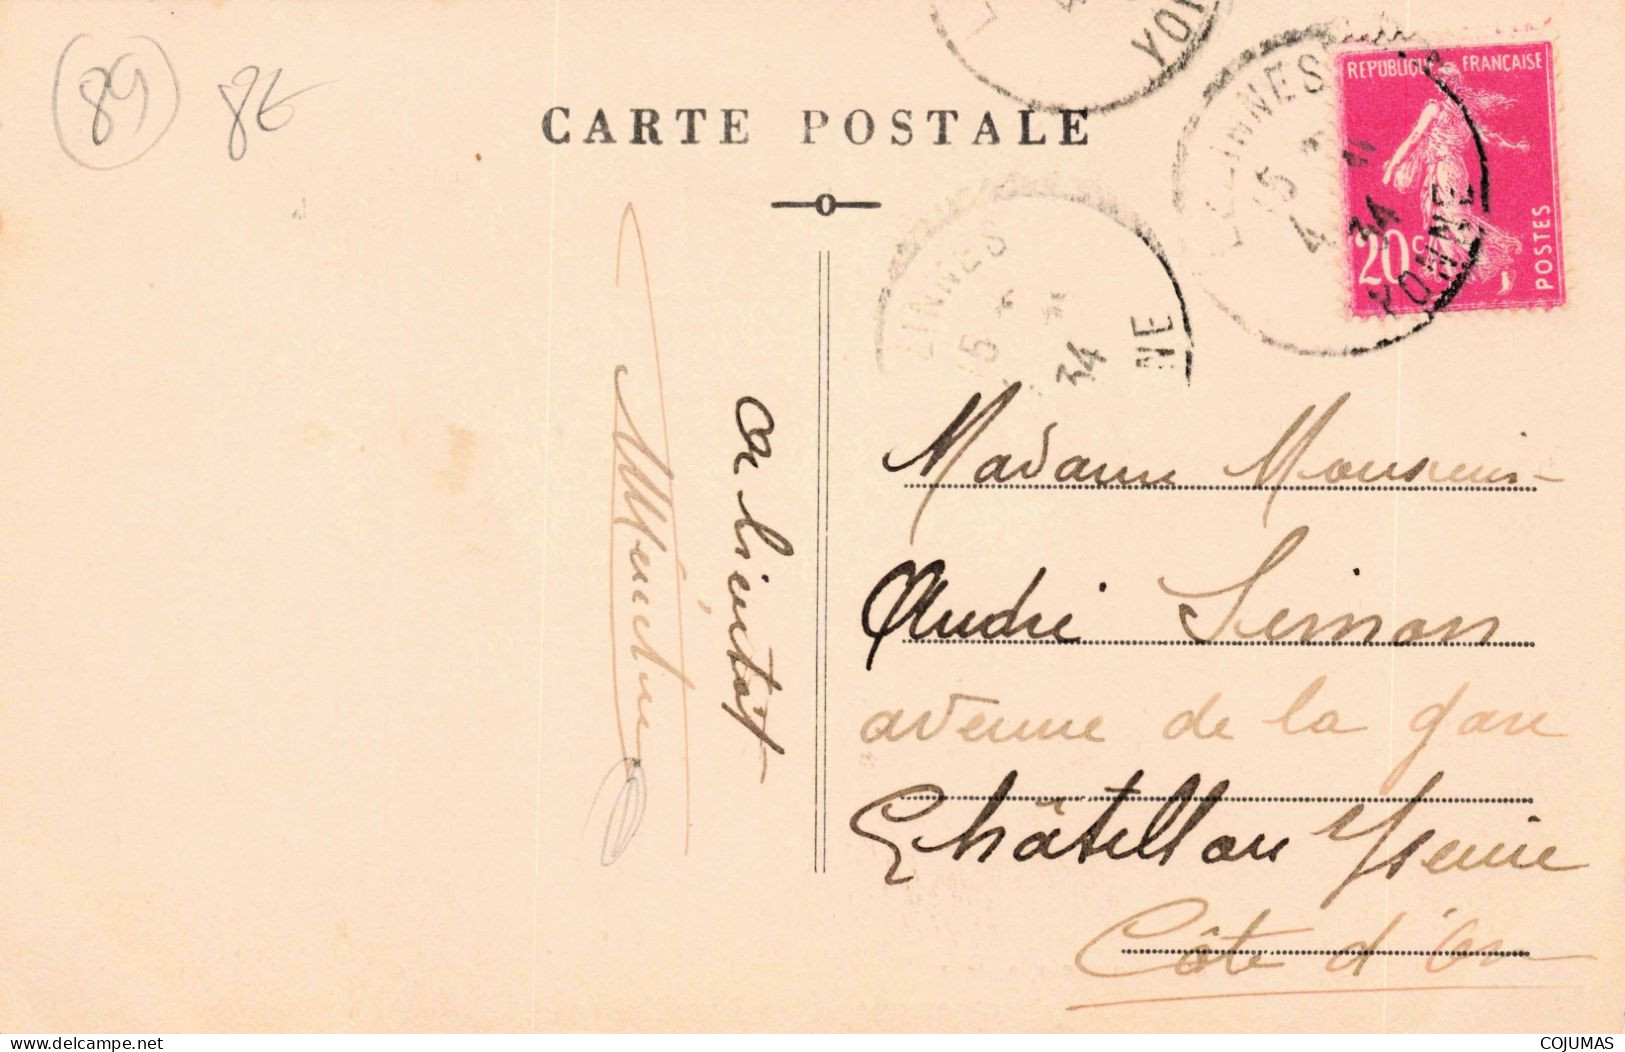 89
8E
CARTE POSTALE
YON
LEZINNES
15
4
34
YONNE
REPUBLIQUE FRANÇAISE
20c
POSTES
ZINNES
15
34
NE
a bientot
Madame Monsieur
André Simon
avenue de la gare
Châtillon s/ Seine
Côte d'Or
www.delcampe.net
COJUMAS